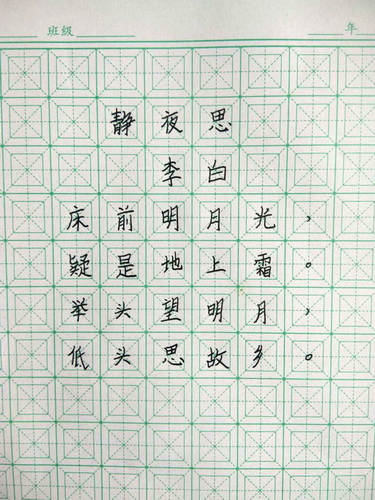 班级 年
静夜思
李白
床前明月光，
疑是地上霜。
举头望明月，
低头思故乡。